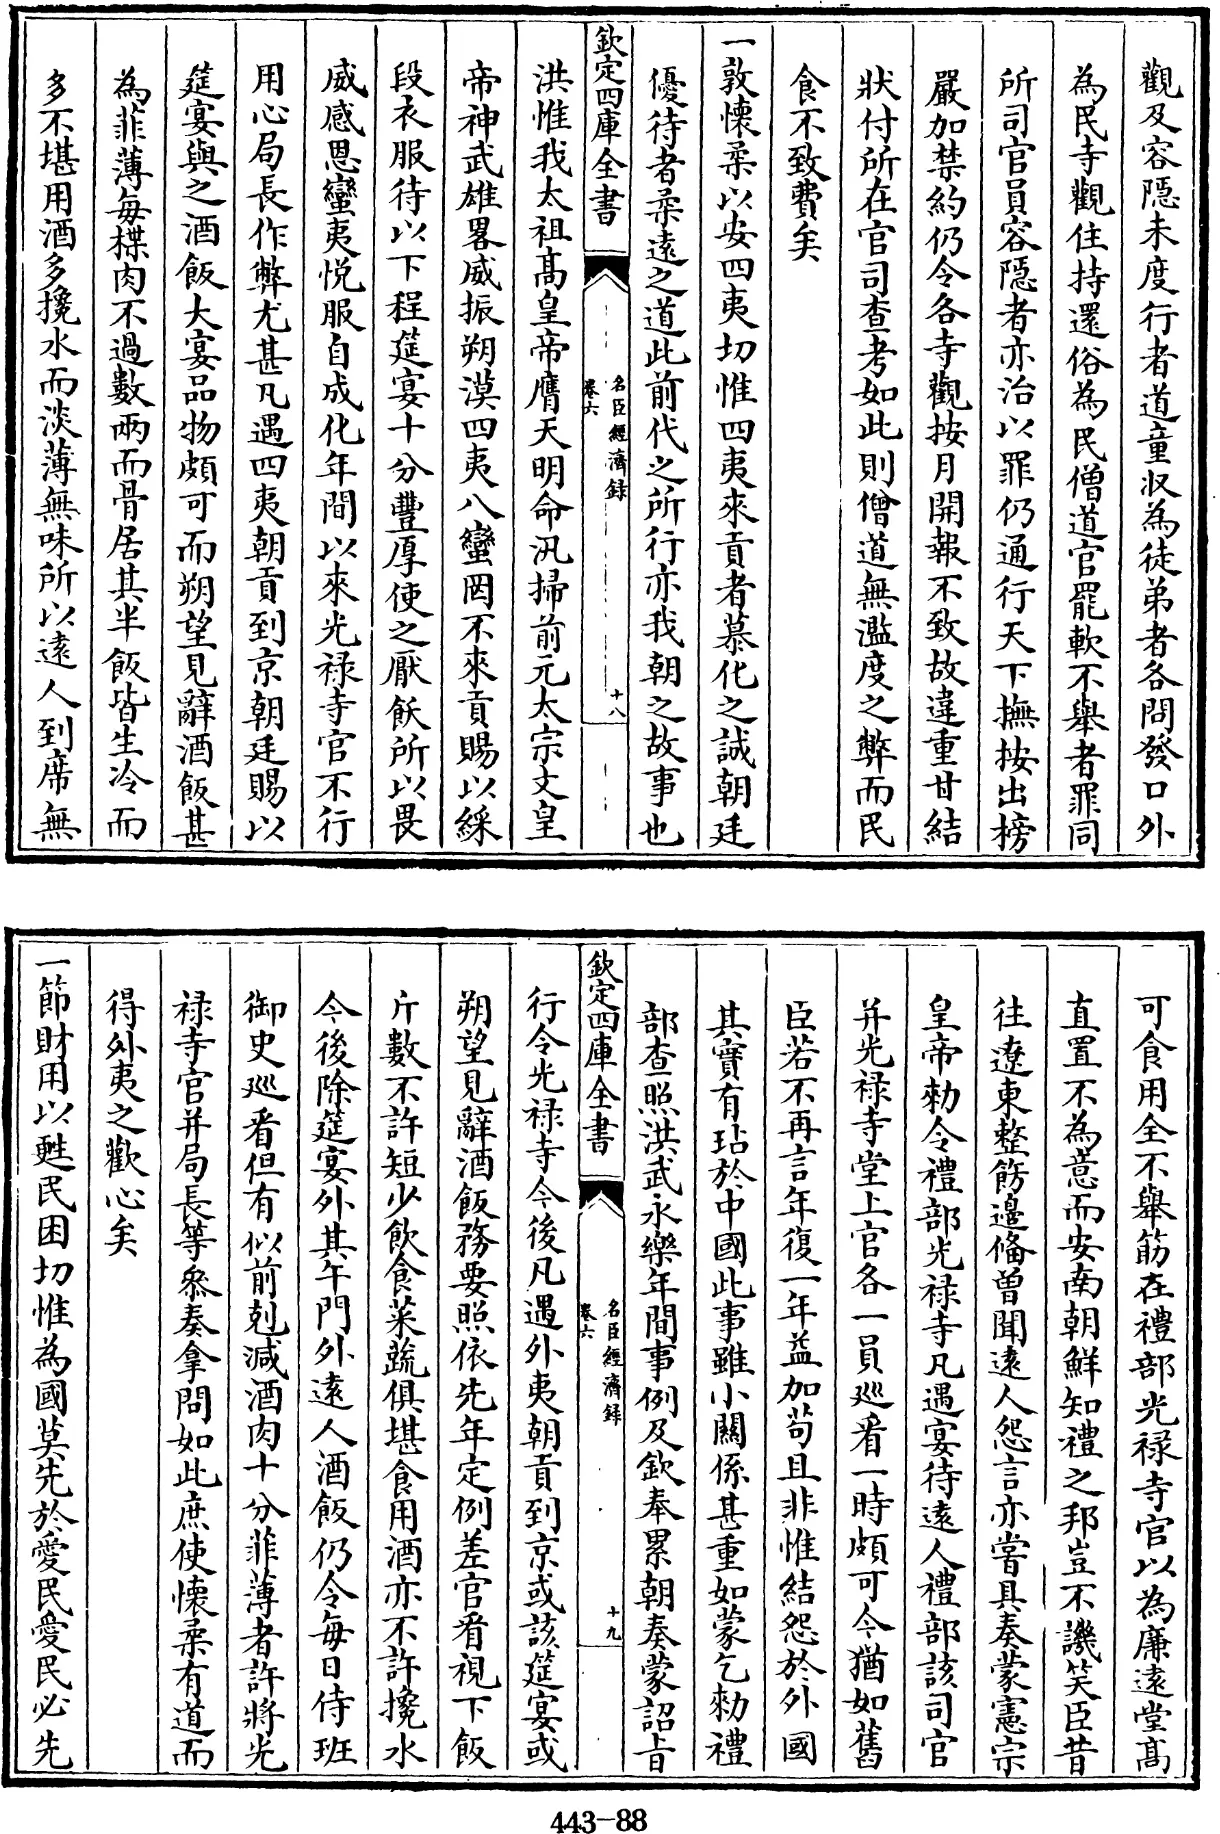 觀及容隱未度行者道童収為徒弟者各問發口外
為民寺觀住持還俗為民僧道官罷軟不舉者罪同
所司官員容隱者亦治以罪仍通行天下撫按出榜
嚴加禁約仍令各寺觀按月開報不致故違重甘結
狀付所在官司查考如此則僧道無濫度之弊而民
食不致費矣
一敦懷柔以安四夷切惟四夷來貢者慕化之誠朝廷
優待者柔遠之道此前代之所行亦我朝之故事也
欽定四庫全書
名臣經濟録
卷六
十八
洪惟我太祖髙皇帝膺天明命汛掃前元太宗文皇
帝神武雄畧威振朔漠四夷八蠻罔不來貢賜以綵
段衣服待以下程筵宴十分豐厚使之厭飫所以畏
威感恩蠻夷悦服自成化年間以來光禄寺官不行
用心局長作弊尤甚凡遇四夷朝貢到京朝廷賜以
筵宴與之酒飯大宴品物頗可而朔望見辭酒飯甚
為菲薄每楪肉不過數兩而骨居其半飯皆生冷而
多不堪用酒多攙水而淡薄無味所以遠人到席無
可食用全不舉筯在禮部光禄寺官以為廉遠堂髙
直置不為意而安南朝鮮知禮之邦豈不譏笑臣昔
往遼東整飭邊備曾聞遠人怨言亦嘗具奏蒙憲宗
皇帝勑令禮部光禄寺凡遇宴待遠人禮部該司官
并光禄寺堂上官各一員廵看一時頗可今猶如舊
臣若不再言年復一年益加苟且非惟結怨於外國
其實有玷於中國此事雖小關係甚重如蒙乞勑禮
部查照洪武永樂年間事例及欽奉累朝奏蒙詔旨
欽定四庫全書
名臣經濟録
卷六
十九
行令光禄寺今後凡遇外夷朝貢到京或該筵宴或
朔望見辭酒飯務要照依先年定例差官看視下飯
斤數不許短少飲食菜蔬俱堪食用酒亦不許攙水
今後除筵宴外其午門外遠人酒飯仍令每日侍班
御史廵看但有似前尅減酒肉十分菲薄者許將光
禄寺官并局長等叅奏拿問如此庶使懷柔有道而
得外夷之歡心矣
一節財用以甦民困切惟為國莫先於愛民愛民必先
443-88